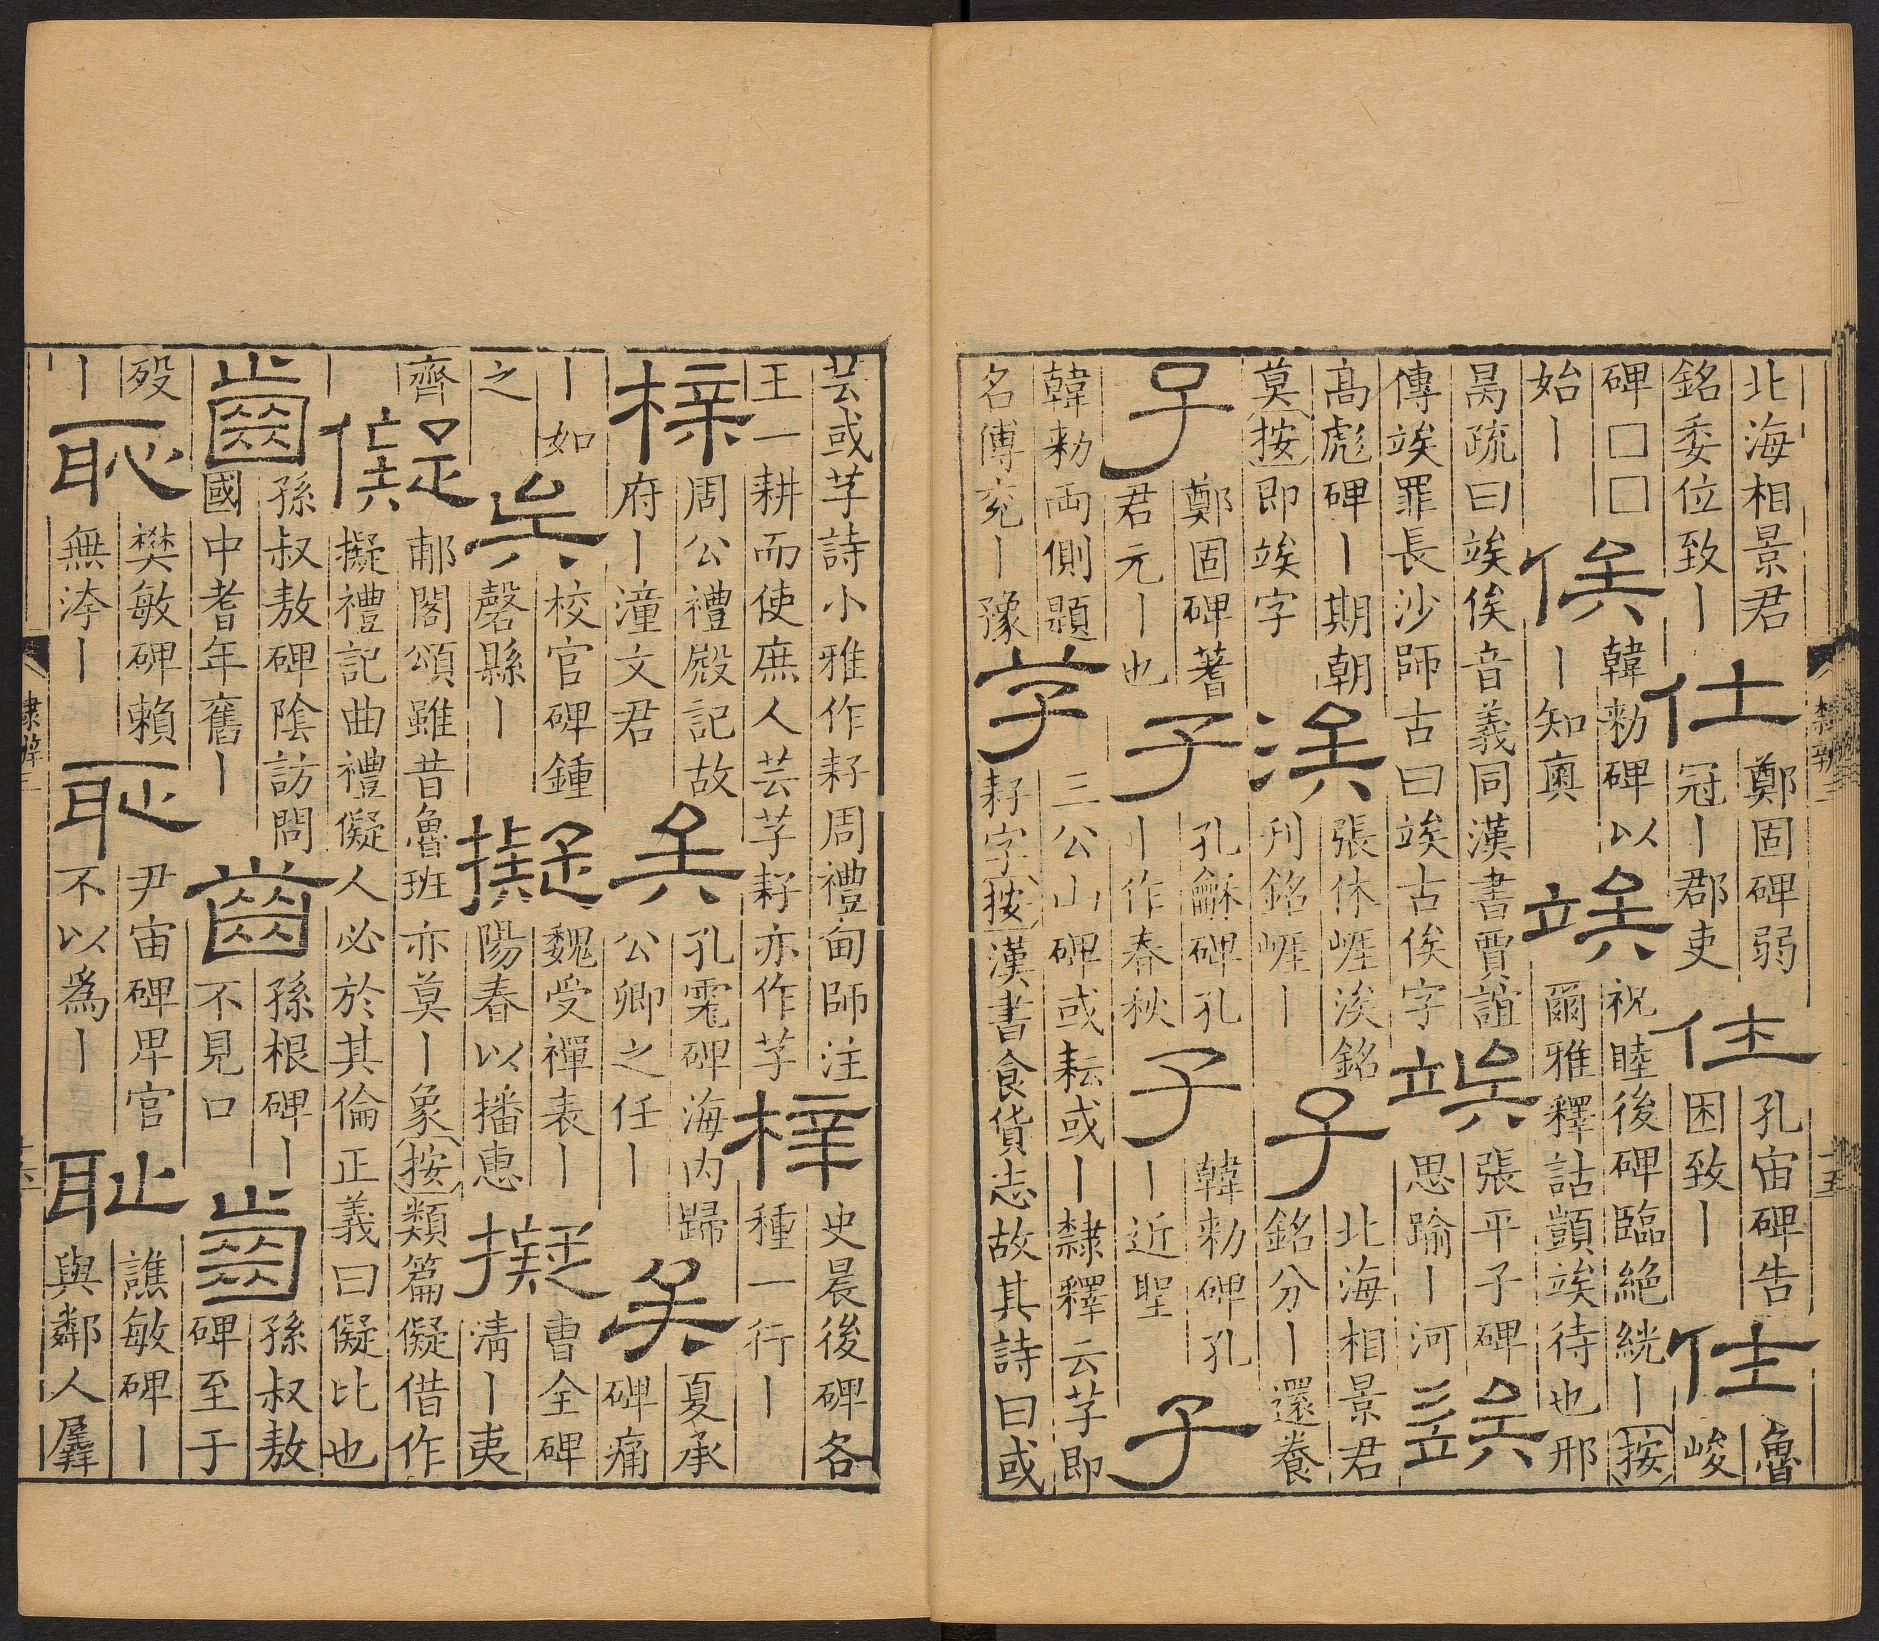 北海相景君
銘委位致丨
仕
鄭固碑弱
冠丨郡吏
仕
孔宙碑告
困致丨
仕
魯
峻
碑□□
始丨
俟
韓勑碑以
丨知奧
竢
祝睦後碑臨絕絖丨按
爾雅釋詁顗竢待也邢
昺疏曰竢俟音義同漢書賈誼
傳竢罪長沙師古曰竢古俟字
竢
張平子碑
思踰丨河
竢
高彪碑丨期朝
莫按即竢字
涘
張休崕涘銘
刋銘崕丨
子
北海相景君
銘分丨還養
子
鄭固碑蓍
君元丨也
子
孔龢碑孔
丨作春秋
子
韓勑碑孔
丨近聖
子
韓勑兩側題
名傅兖丨豫
芓
三公山碑或耘或丨隸釋云芓即
耔字按漢書食貨志故其詩曰或
芸或芓詩小雅作耔周禮甸師注
王一耕而使庶人芸芓耔亦作芓
梓
史晨後碑各
種一行丨
梓
周公禮殿記故
府丨潼文君
矣
孔碑海内歸
公卿之任丨
矣
夏承
碑痛
丨如
之
矣
校官碑鍾
磬縣丨
擬
魏受禪表丨
陽春以播惠
擬
曹全碑
清丨夷
齊
丨
儗
郙閣頌雖昔魯班亦莫丨象按類篇儗借作
擬禮記曲禮儗人必於其倫正義曰儗比也
齒
孫叔敖碑陰訪問
國中耆年舊丨
齒
孫根碑丨
不見口
齒
孫叔敖
碑至于
歿
丨
恥
樊敏碑賴
無洿丨
恥
尹宙碑卑官
不以爲丨
耻
譙敏碑丨
與鄰人羼
隸辨三
十五
隸辨三
十六